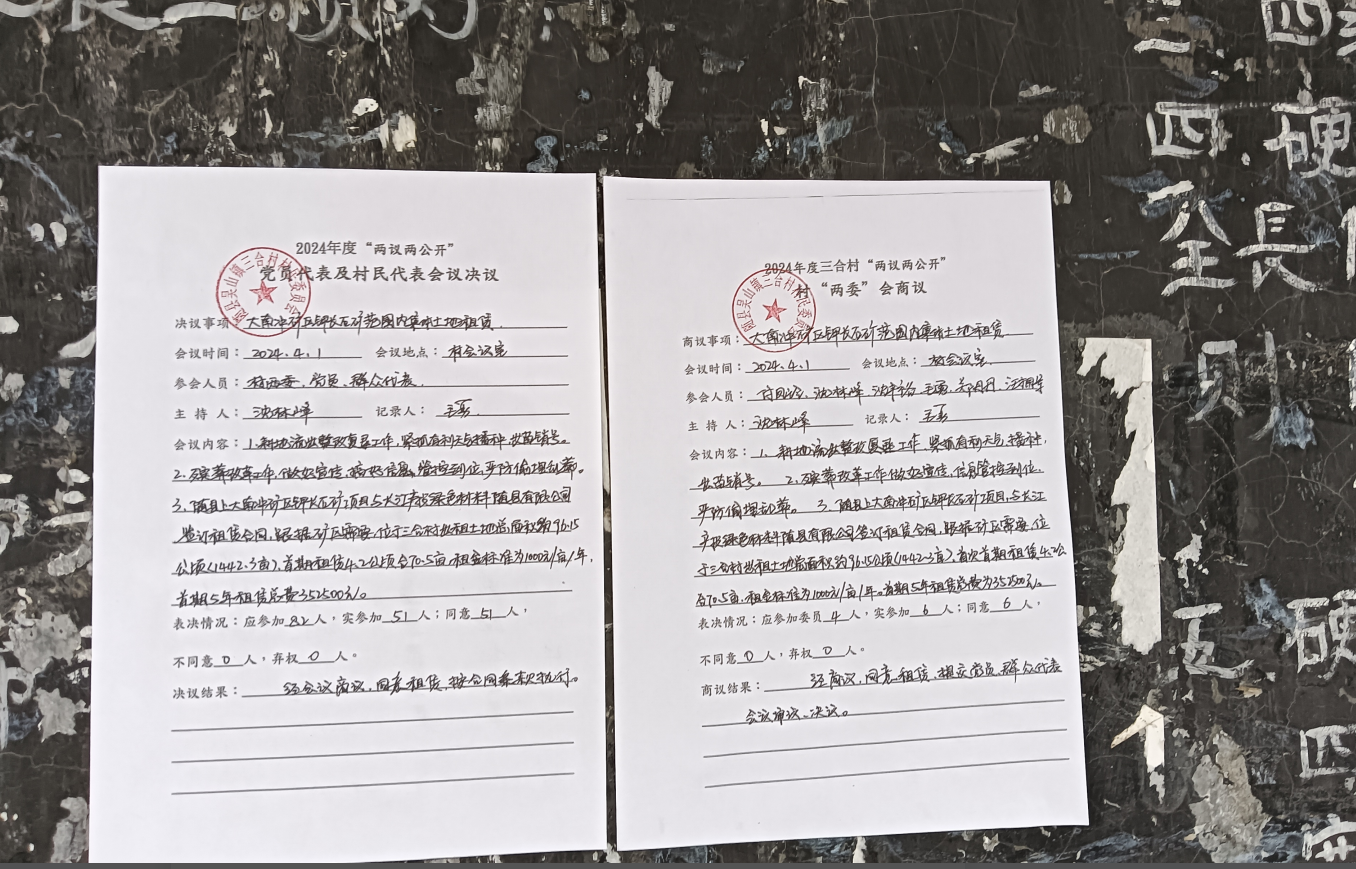 2024年度“两议两公开”
党员代表及村民代表会议决议
随县吴山镇三合村村民委员会
决议事项：大南冲矿区钾长石矿范围内集体土地租赁
会议时间：2024.4.1 会议地点：村会议室
参会人员：村两委、党员、群众代表.
主持人：沈林峰 记录人：
会议内容：1.耕地流出整改复垦工作，紧抓有利天气播种，出苗销号。
2.殡葬改革工作，做好宣传，信息管控到位，严防偷埋乱葬。
3.随县上大南冲矿区钾长石矿项目与长江产投绿色材料随县有限公司
签订租赁合同，跟据矿区需要，位于三合村拟租土地总面积约96.15
公顷(1442.3亩)，首期租赁4.2公顷合70.5亩，租金标准为1000元/亩/年，
首期5年租赁总费352500元。
表决情况：应参加82人，实参加51人；同意51人，
不同意0人，弃权0人。
决议结果：经会议商议，同意租赁，按合同条款执行。
2024年度三合村“两议两公开”
村“两委”会商议
随县吴山镇三合村村民委员会
商议事项：大南冲矿区钾长石矿范围内集体土地租赁
会议时间：2024.4.1 会议地点：村会议室
参会人员：沈林峰
主持人：沈林峰 记录人：
会议内容：1、耕地流出整改复垦工作，紧抓有利天气，播种，
出苗销号。 2、殡葬改革工作做好宣传，信息管控到位，
严防偷埋乱葬。 3、随县上大南冲矿区钾长石矿项目，与长江
产投绿色材料随县有限公司签订租赁合同，跟据矿区需要，位
于三合村拟租土地总面积约96.15公顷(1442.3亩)首次首期租赁4.2公
合70.5亩，租金标准为1000元/亩/年。首期5年租赁总费为352500元。
表决情况：应参加委员4人，实参加6人；同意6人，
不同意0人，弃权0人。
商议结果：经商议，同意租赁，提交党员、群众代表
会议审议、决议。
四
三
四 硬
至 長
五 硬
四